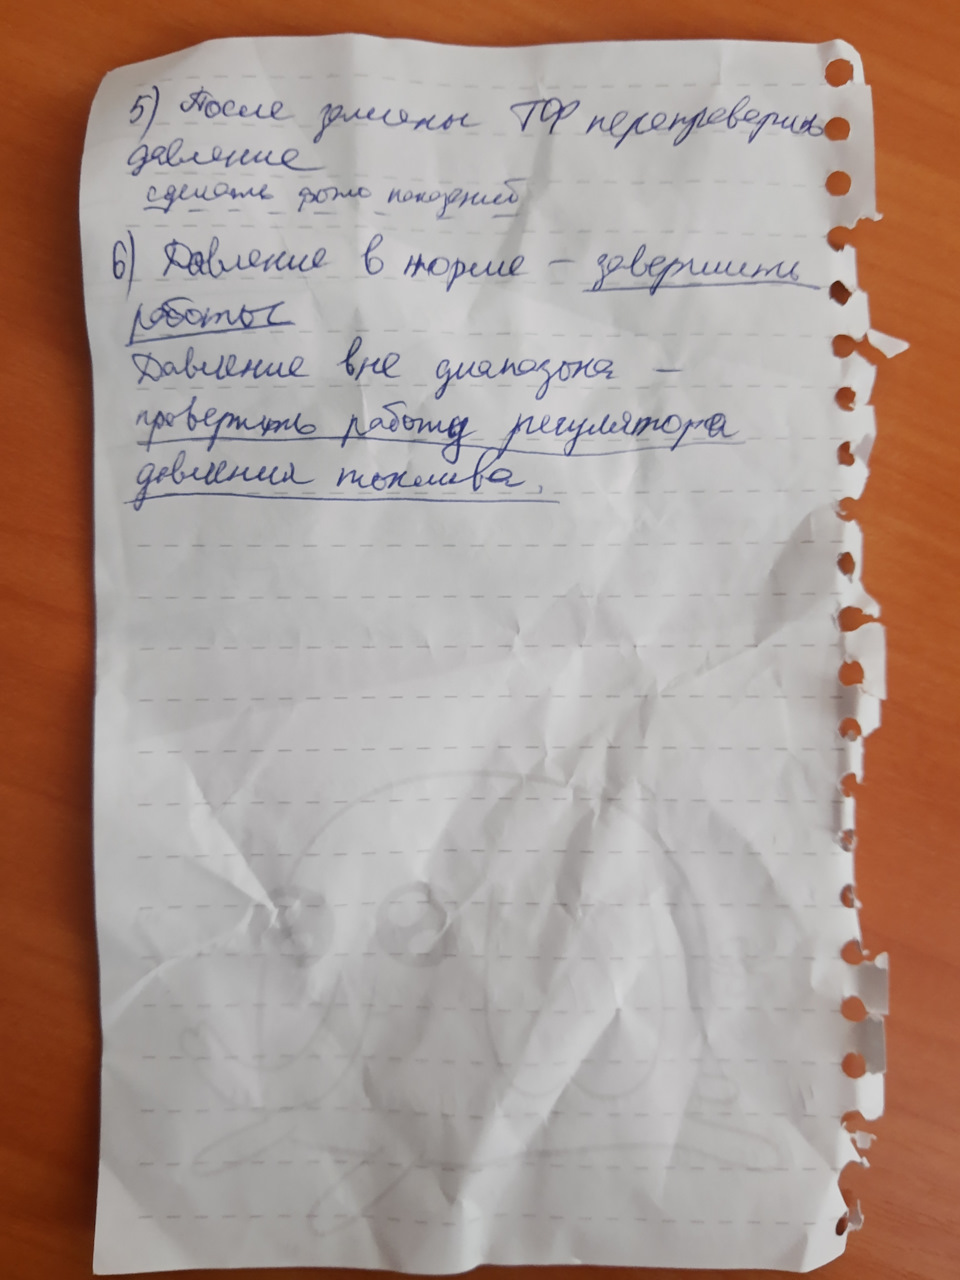 5) После замены ТФ перепроверить
давление
сделать фото показаний
6) Давление в норме – завершить
работы
Давление вне диапазона –
проверить работу регулятора
давления топлива.